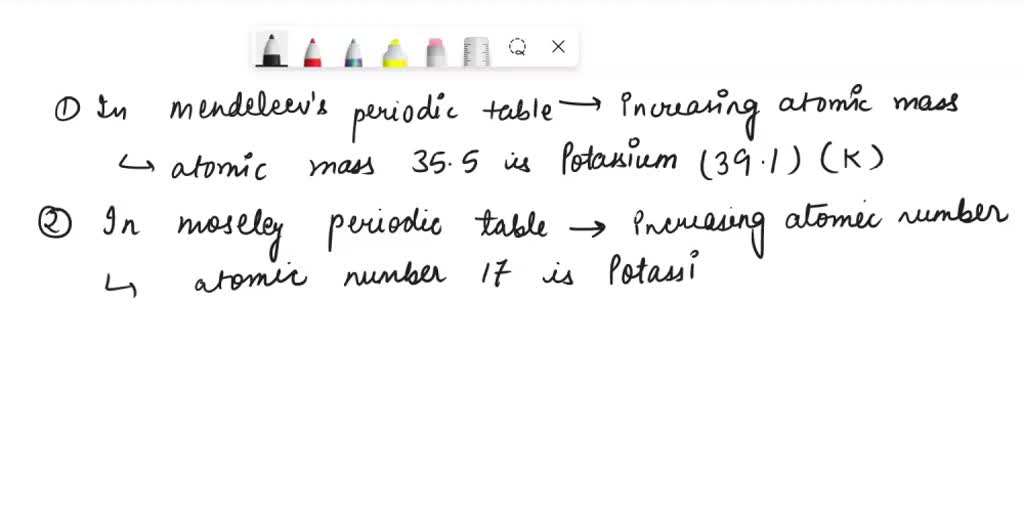 ① In mendeleev's periodic table → Increasing atomic mass
↳ atomic mass 35.5 is Potassium (39.1) (K)
② In moseley periodic table → Increasing atomic number
↳ atomic number 17 is Potassi